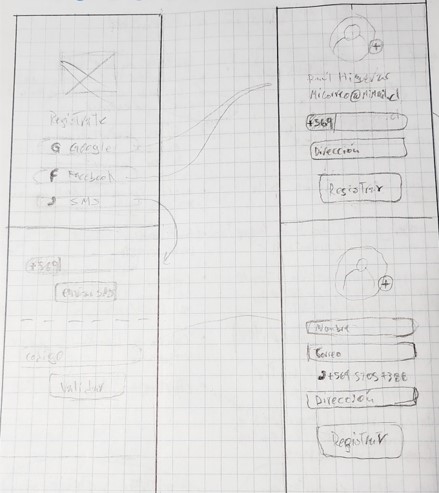 Registrate
G Google
F Facebook
SMS
+569
Enviar SMS
codigo
Validar
MiCorreo@MiMail.cl
+569
Dirección
Registrar
Nombre
Correo
Dirección
Registrar